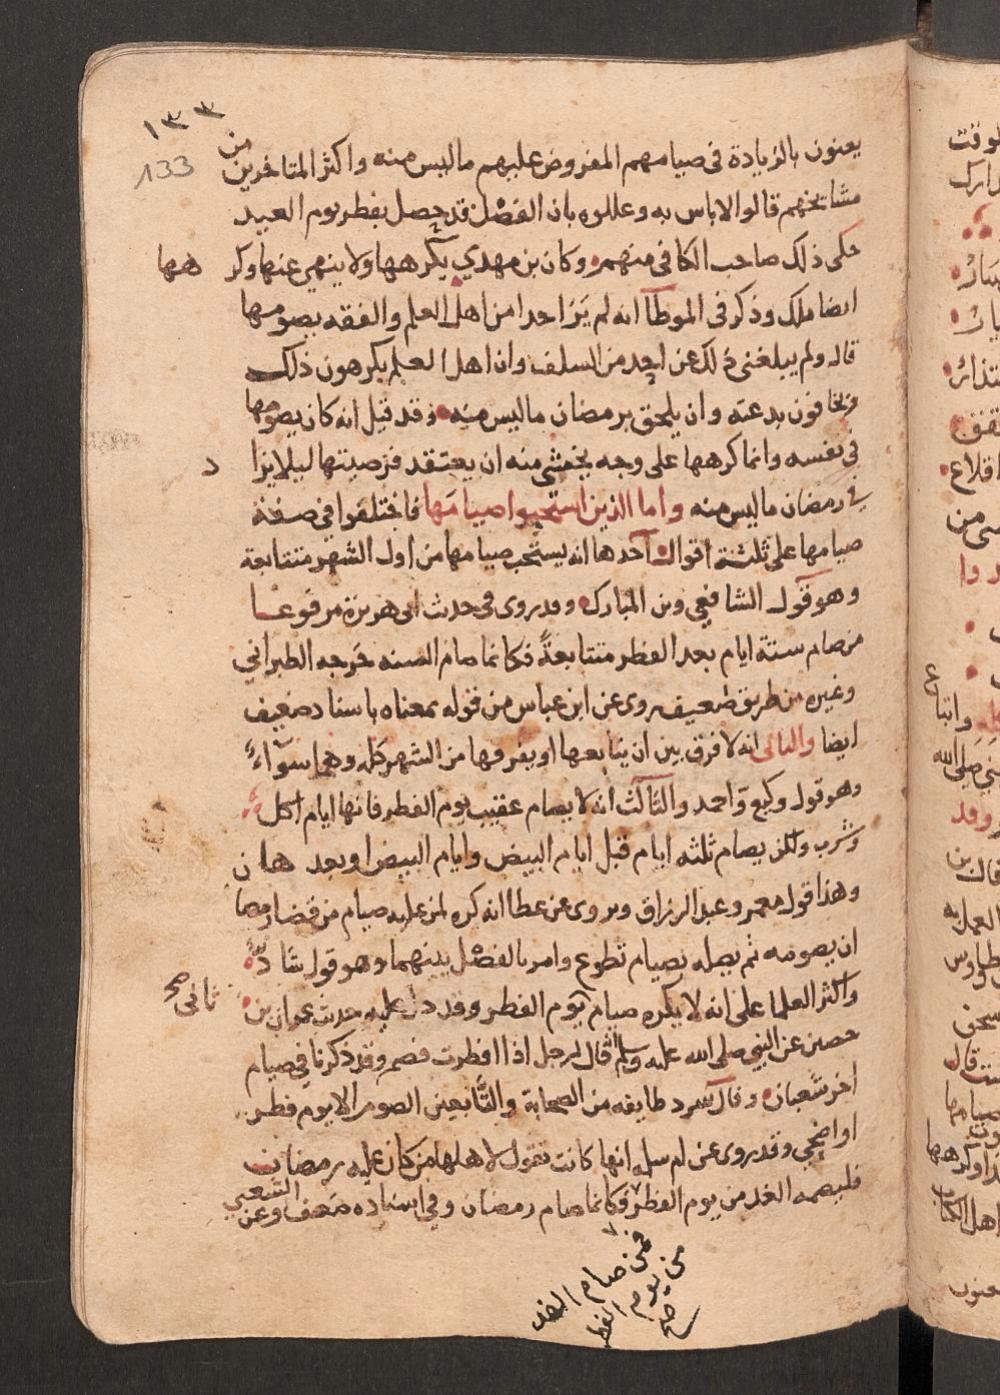 ١٣٣
133
يعنون بالزيادة في صيامهم المفروض عليهم ما ليس منه واكثر المتاخرين من
مشايخهم قالوا لا باس به وعللوه بان الفضل قد حصل بفطر يوم العيد
حكى ذلك صاحب الكافي منهم وكان بن مهدي يكرهها ولا ينهى عنها وكر هها
ايضا ملك وذكر في الموطأ انه لم ير احدا من اهل العلم والفقه يصومها
قال ولم يبلغني ذلك عن احد من السلف وان اهل العلم يكرهون ذلك
ويخافون بدعته وان يلحق برمضان ما ليس منه وقد قيل انه كان يصومها
في نفسه وانما كرهها على وجه يخشى منه ان يعتقد فرضيتها ليلا يزا د
في رمضان ما ليس منه واما الذين استحبوا صيامها فاختلفوا في صفة
صيامها على ثلثة اقوال احدها انه يستحب صيامها من اول الشهر متتابعة
وهو قول الشافعي وبن المبارك وقد روى في حدث ابى هريرة مرفوعا
من صام ستة ايام بعد الفطر متتابعة فكانما صام السنه خرجه الطبراني
وغيره من طريق ضعيف روى عن ابن عباس من قوله بمعناه باسناد ضعيف
ايضا والثانى انه لا فرق بين ان يتابعها او يفرقها من الشهر كله وهما سواء
وهو قول وكيع واحمد والثالث انه لا يصام عقيب يوم الفطر فانها ايام اكل
وشرب ولكن يصام ثلثه ايام قبل ايام البيض وايام البيض او بعد ها ن
وهذا قول معمر وعبد الرزاق ويروى عن عطا انه كره لمن عليه صيام من قضا رمضا
ان يصومه ثم يصله بصيام تطوع وامر بالفضل بينهما وهو قول شاذ
واكثر العلما على انه لا يكره صيام ثانى يوم الفطر وقد دل عليه حديث عمران بن
صح
حصين عن النبي صلى الله عليه وسلم انه قال لرجل اذا افطرت فصم وقد ذكرنا في صيام
اخر شعبان وقال سرد طايفه من الصحابة والتابعين الصوم الا يوم فطر
او اضحي وقد روى عن ام سلمه انها كانت تقول لاهلها من كان عليه رمضان
فليصمه الغد من يوم الفطر فكانما صام رمضان وفي اسناده ضعف وعن الشعبي
فمن صام الغد
من يوم الفطر
صح